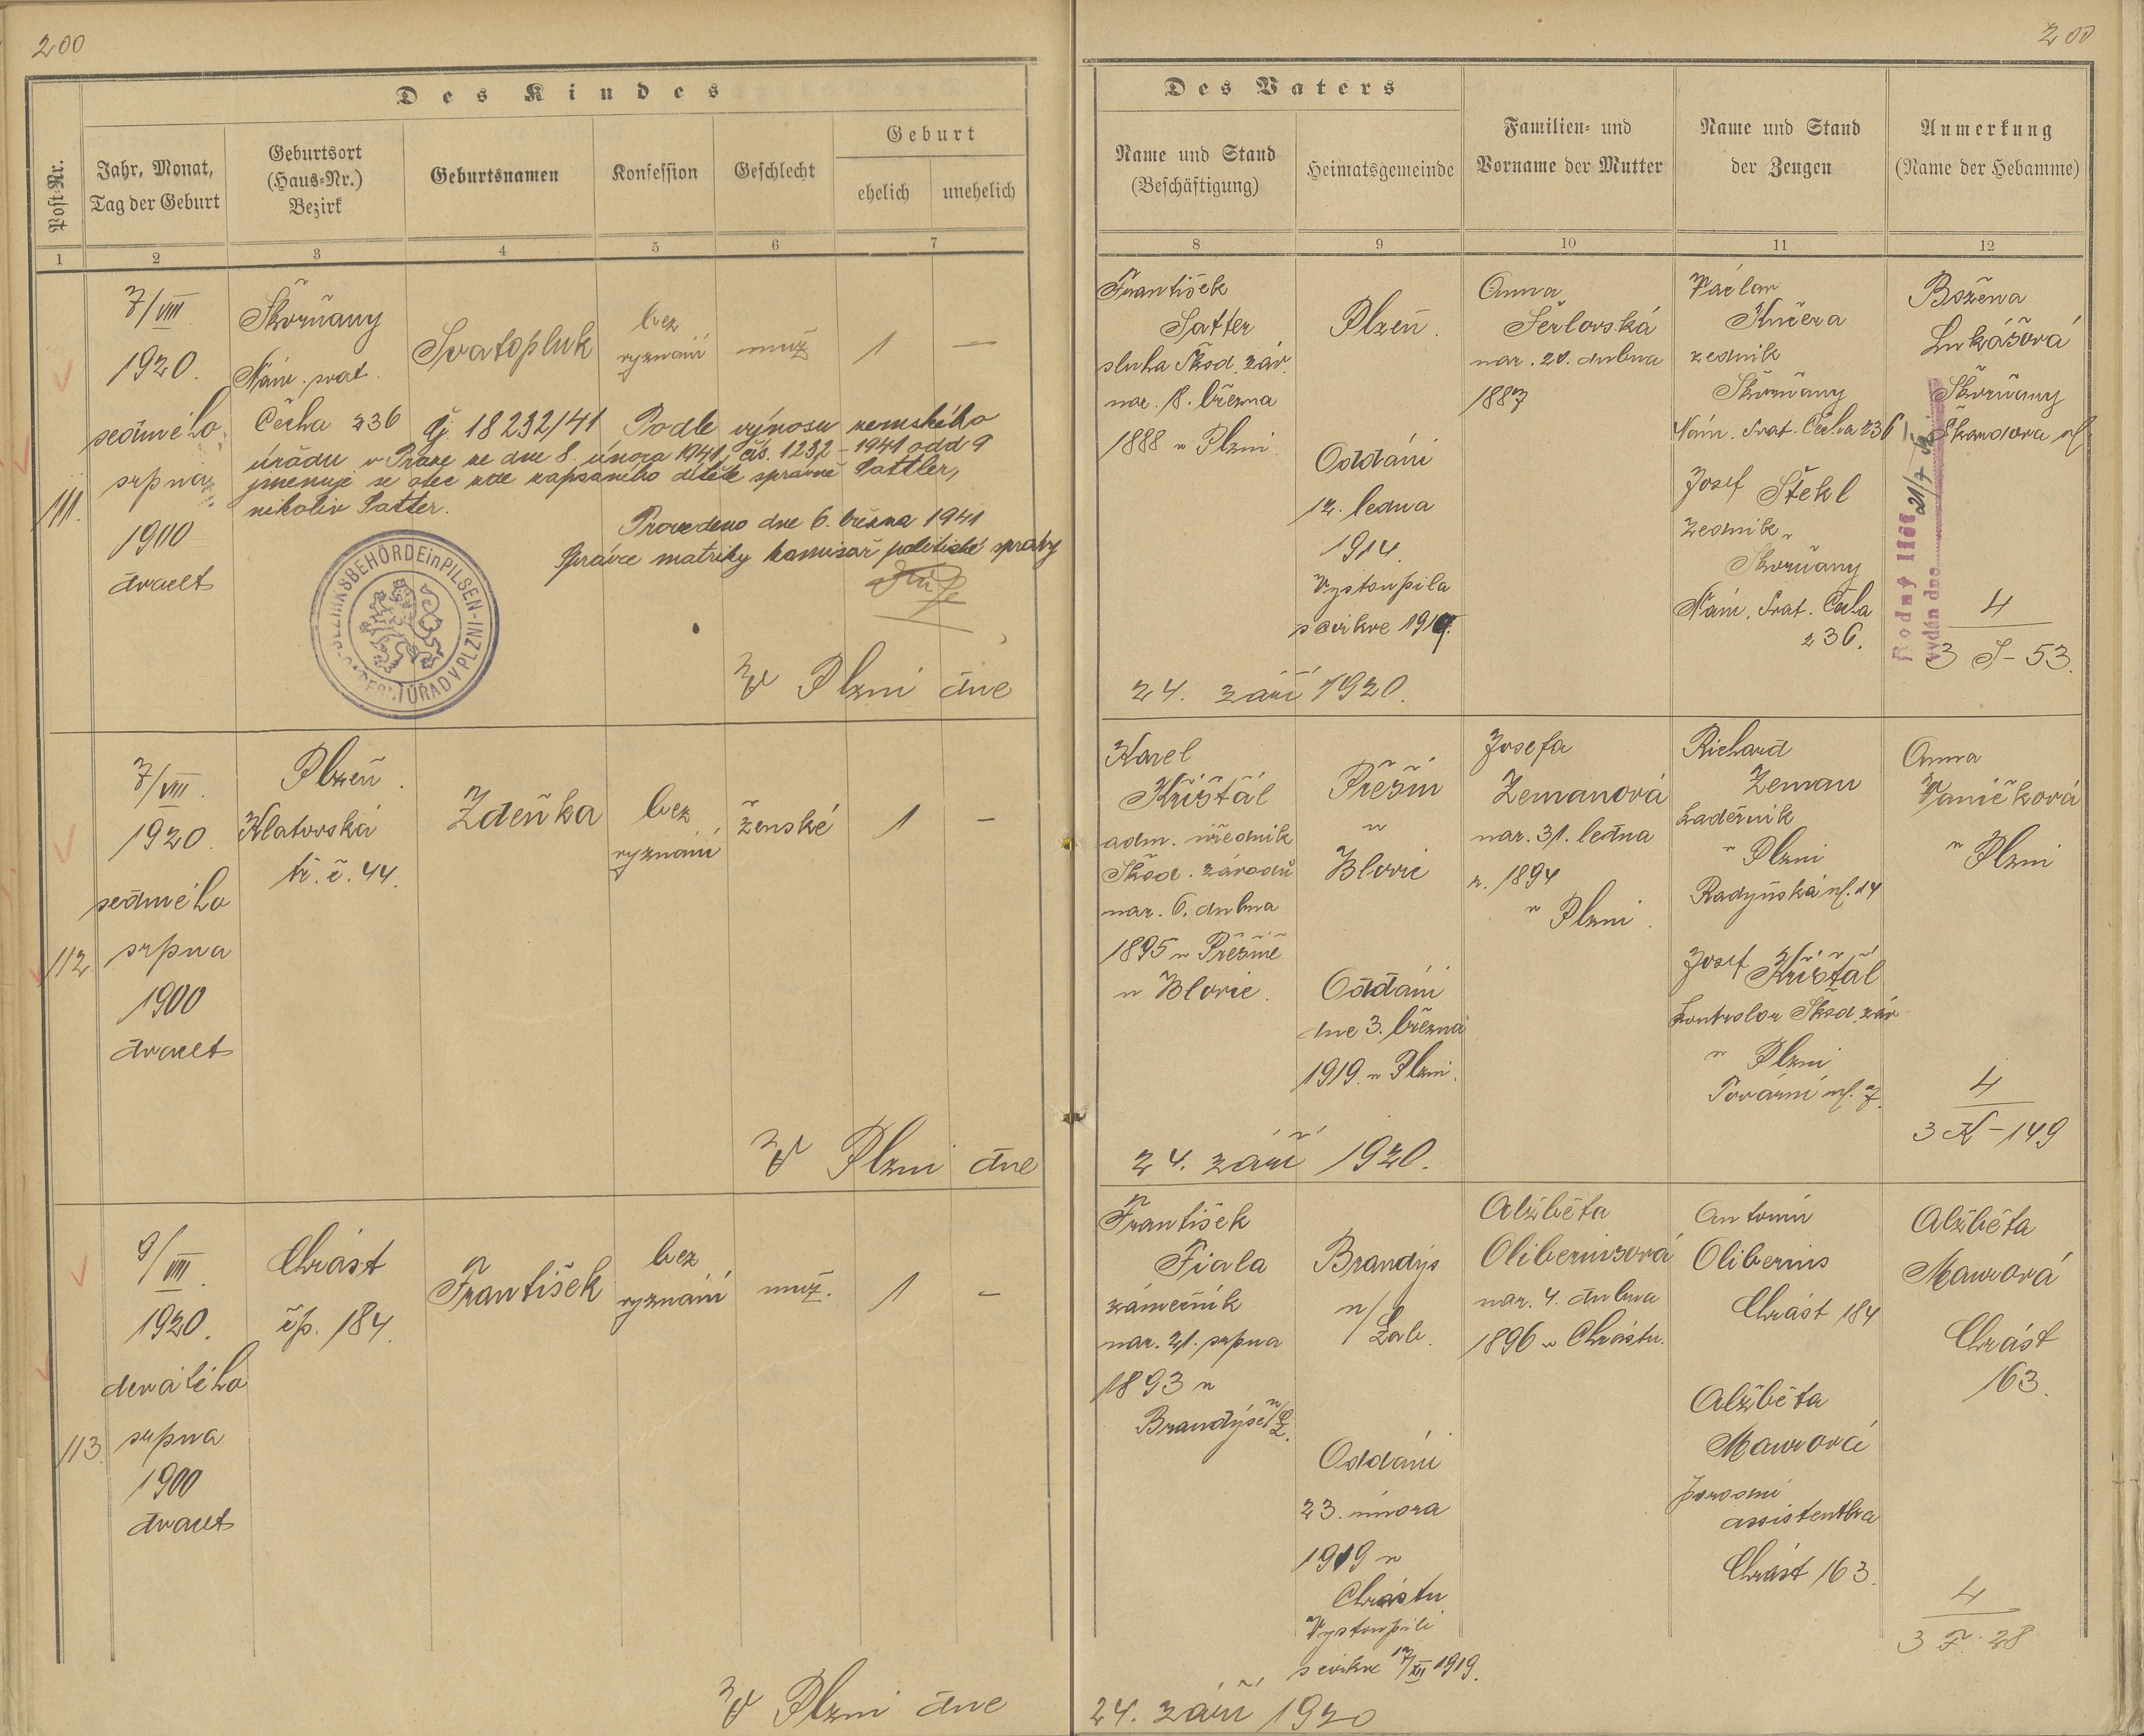 200
200
Des Kindes
Post-Nr.
Jahr, Monat,
Tag der Geburt
Geburtsort
(Haus-Nr.)
Bezirk
Geburtsnamen
Konfession
Geschlecht
Geburt
ehelich
unehelich
1
2
3
4
5
6
7
Des Vaters
Name und Stand
(Beschäftigung)
Heimatsgemeinde
Familien- und
Vorname der Mutter
Name und Stand
der Zeugen
Anmerkung
(Name der Hebamme)
8
9
10
11
12
111.
7/VIII
1920.
sedmého
srpna
1900
dvacet
Škvrňany
Nám. svat.
Čecha 236
Svatopluk
bez
vyznání
muž
1
—
čj. 18232/41 Podle výnosu zemského
úřadu v Praze ze dne 8. února 1941, čís. 1232-1941 odd 9
jmenuje se otec zde zapsaného dítěte správně Sattler,
nikoliv Satter.
Provedeno dne 6. března 1941
Správce matriky komisař politické správy
BEZIRKSBEHÖRDE in PILSEN
ÚŘAD V PLZNI
V Plzni dne
František
Satter
sluha Škod. záv.
nar. 18. března
1888 v Plzni.
Plzeň.
Oddáni
12. ledna
1914.
Vystoupila
z církve 1919.
24. září 1920.
Anna
Šerlovská
nar. 20. dubna
1887
Václav
Kučera
zedník
Škvrňany
Nám. Svat. Čecha 236
Josef Štekl
zedník
Škvrňany
Nám. Svat. Čecha
236.
Božena
Lukášová
Škvrňany
Škardova ul.
Rodný list
vydán dne
4
3 S-53.
112
7/VIII.
1920.
sedmého
srpna
1900
dvacet
Plzeň.
Klatovská
tř. č. 44.
Zdeňka
bez
vyznání
ženské
1
-
V Plzni dne
Karel
Křišťál
adm. úředník
Škod. závodů
nar. 6. dubna
1895 v Přešíně
u Blovic.
Přešín
u
Blovic
Oddáni
dne 3. března
1919 v Plzni.
24. září 1920.
Josefa
Zemanová
nar. 31. ledna
r. 1894
v Plzni.
Richard
Zeman
kadeřník
v Plzni
Radyňská ul. 14
Josef Křišťál
kontrolor Škod. záv
v Plzni
Tovární ul. 7.
Anna
Vaníčková
v Plzni
4
3 K-149
113.
9/VIII.
1920.
devátého
srpna
1900
dvacet
Chrást
čp. 184.
František
bez
vyznání
muž.
1
-
V Plzni dne
František
Fiala
zámečník
nar. 21. srpna
1893 v
Brandýse n/L.
Brandýs
n/
Lab.
Oddáni
23. února
1919 v
Chrástu
Vystoupili
z církve 17/XII 1919.
24. září 1920
Alžběta
Oliberiusová
nar. 4. dubna
1896 v Chrástu.
Antonín
Oliberius
Chrást 184
Alžběta
Maurová
porodní
assistentka
Chrást 163.
Alžběta
Maurová
Chrást
163.
4
3 F. 28